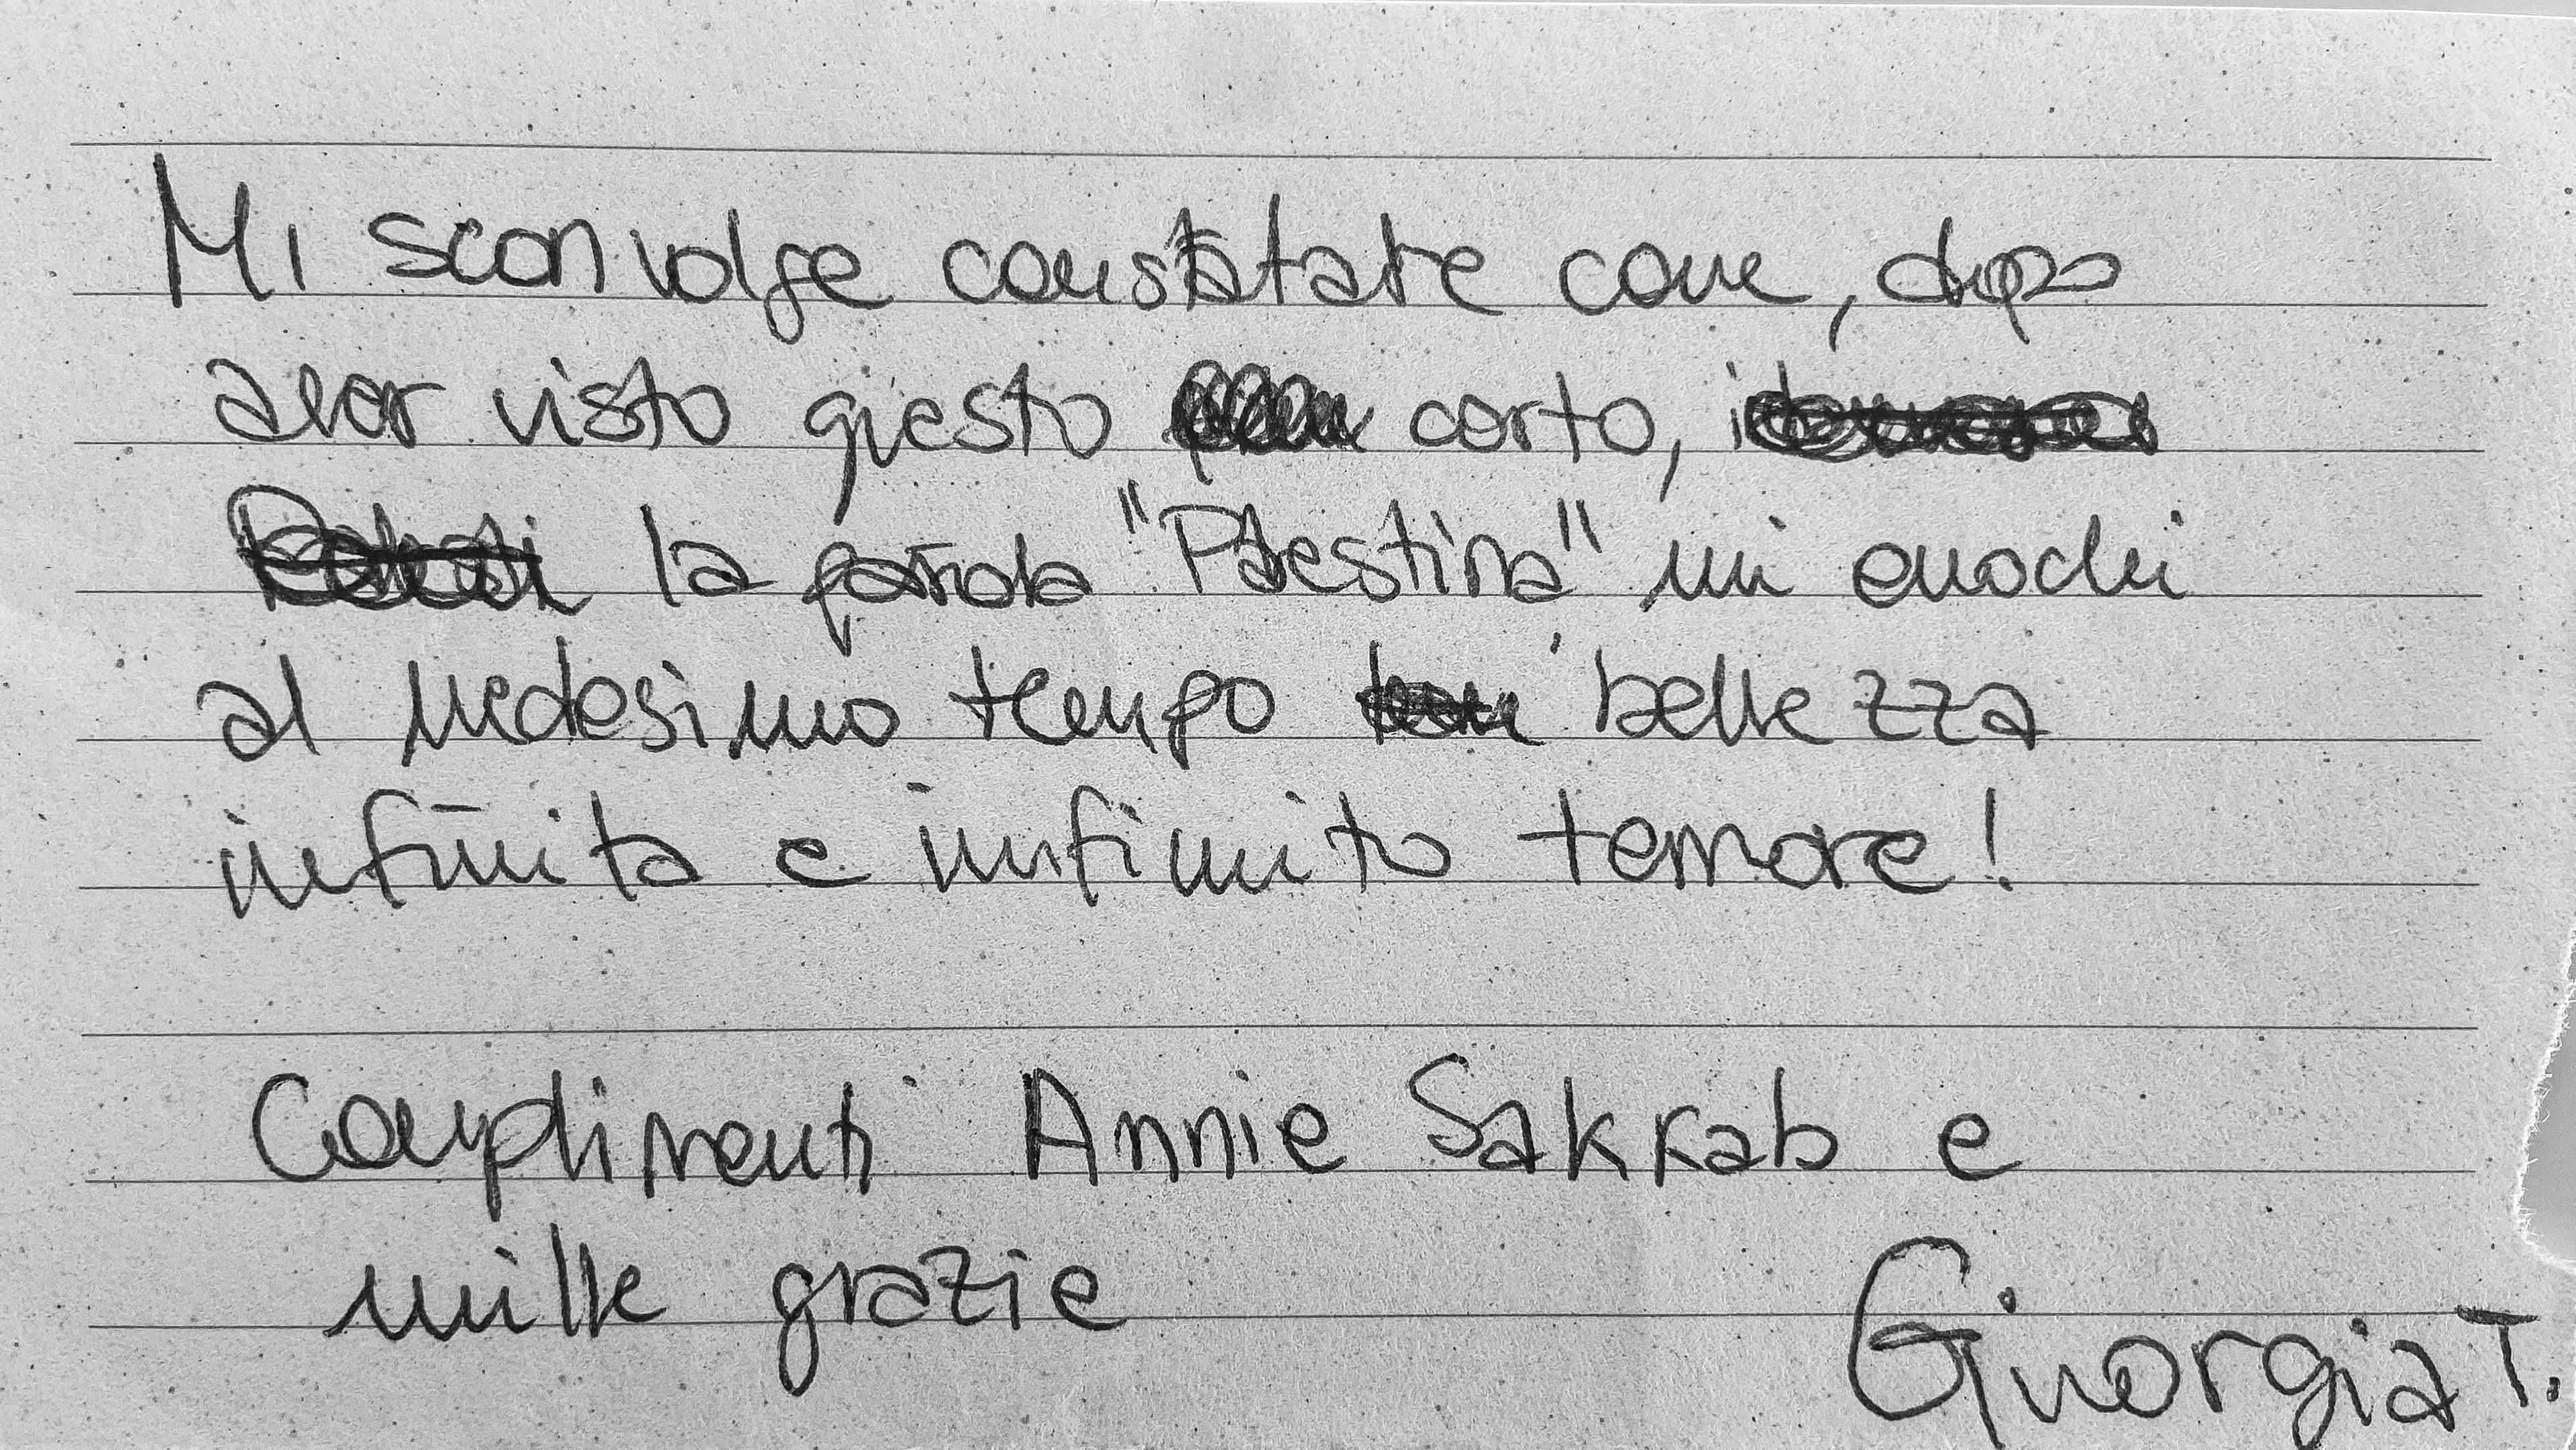 Mi sconvolge constatare come, dopo
aver visto questo corto,
la parola "Palestina" mi evochi
al medesimo tempo bellezza
infinita e infinito terrore!
Complimenti Annie Sakkab e
mille grazie
Giuorgia T.